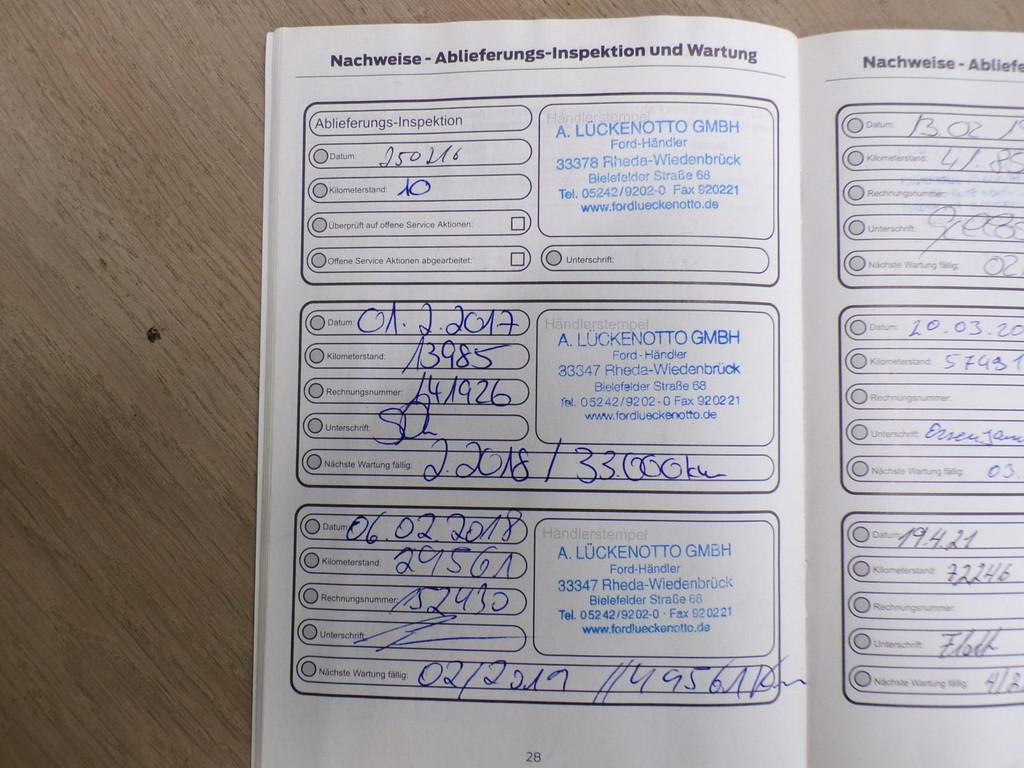 Nachweise - Ablieferungs-Inspektion und Wartung
Ablieferungs-Inspektion
Datum: 250216
Kilometerstand: 10
Überprüft auf offene Service Aktionen:
Offene Service Aktionen abgearbeitet:
Händlerstempel
A. LÜCKENOTTO GMBH
Ford-Händler
33378 Rheda-Wiedenbrück
Bielefelder Straße 68
Tel. 05242/9202-0 Fax 920221
www.fordlueckenotto.de
Unterschrift:
Datum: 01.2.2017
Kilometerstand: 13985
Rechnungsnummer: 141926
Unterschrift:
Nächste Wartung fällig: 2.2018 / 33.000km
Händlerstempel
A. LÜCKENOTTO GMBH
Ford-Händler
33347 Rheda-Wiedenbrück
Bielefelder Straße 68
Tel. 05242/9202-0 Fax 920221
www.fordlueckenotto.de
Datum: 06.02.2018
Kilometerstand: 29561
Rechnungsnummer: 152430
Unterschrift:
Nächste Wartung fällig: 02/2019 // 49561 Km
Händlerstempel
A. LÜCKENOTTO GMBH
Ford-Händler
33347 Rheda-Wiedenbrück
Bielefelder Straße 68
Tel. 05242/9202-0 · Fax 920221
www.fordlueckenotto.de
28
Nachweise - Abliefe
Datum: 13.02
Kilometerstand:
Rechnungsnummer:
Unterschrift:
Nächste Wartung fällig: 02.
Datum: 20.03.20
Kilometerstand: 57431
Rechnungsnummer:
Unterschrift:
Nächste Wartung fällig: 03.
Datum: 19.4.21
Kilometerstand: 72246
Rechnungsnummer:
Unterschrift:
Nächste Wartung fällig: 4/2